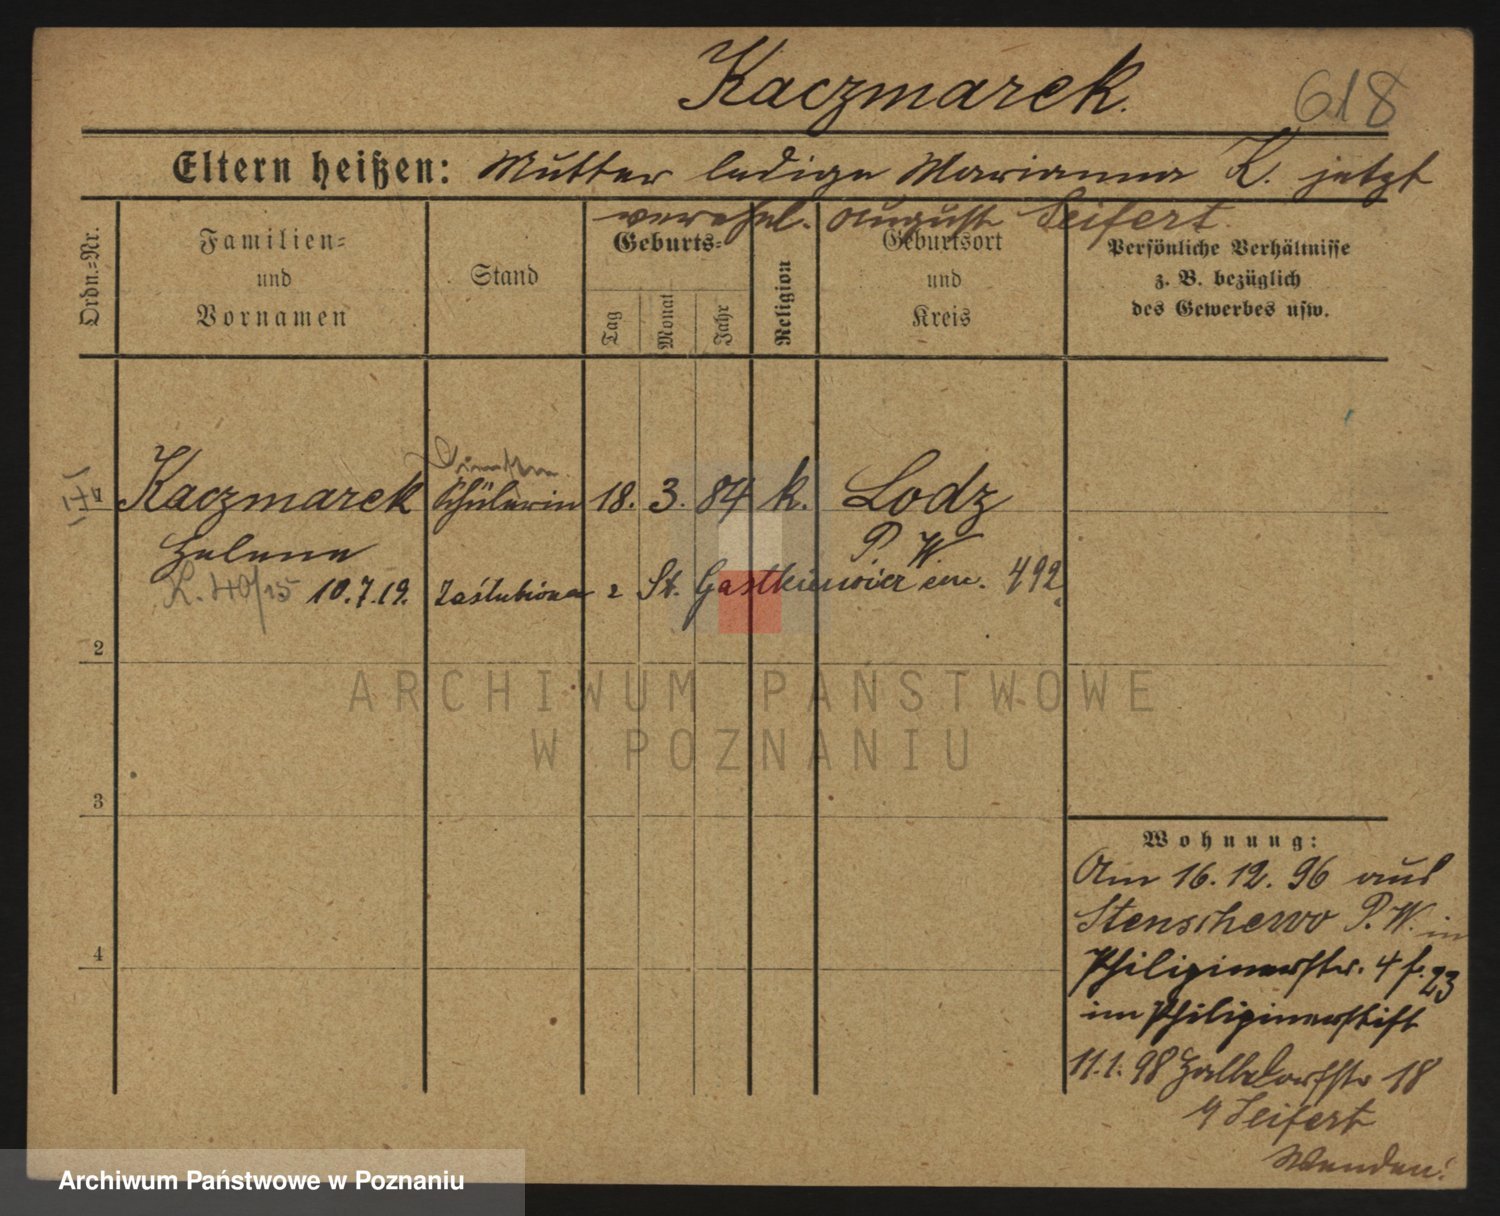 Kaczmarek.
618
Eltern heißen: Mutter ledige Marianna K. jetzt
verehel. August Seifert.
Ordn.=Nr.
Familien=
und
Vornamen
Stand
Geburts=
Tag
Monat
Jahr
Religion
Geburtsort
und
Kreis
Persönliche Verhältnisse
z. B. bezüglich
des Gewerbes usw.
Kaczmarek Schülerin 18. 3. 84 k. Lodz
Helene P. W.
K. 40/15 10.7.19. Zaślubiona z St. em. 492
2
ARCHIWUM PAŃSTWOWE
W POZNANIU
3
Wohnung:
Am 16. 12. 96 aus
Stenschewo P. W. in
Philipinenstr. 4 f. 23
im Philipinenstift
4
11.1. 98 Halbdorfstr 18
b/ Seifert
Wenden!
Archiwum Państwowe w Poznaniu